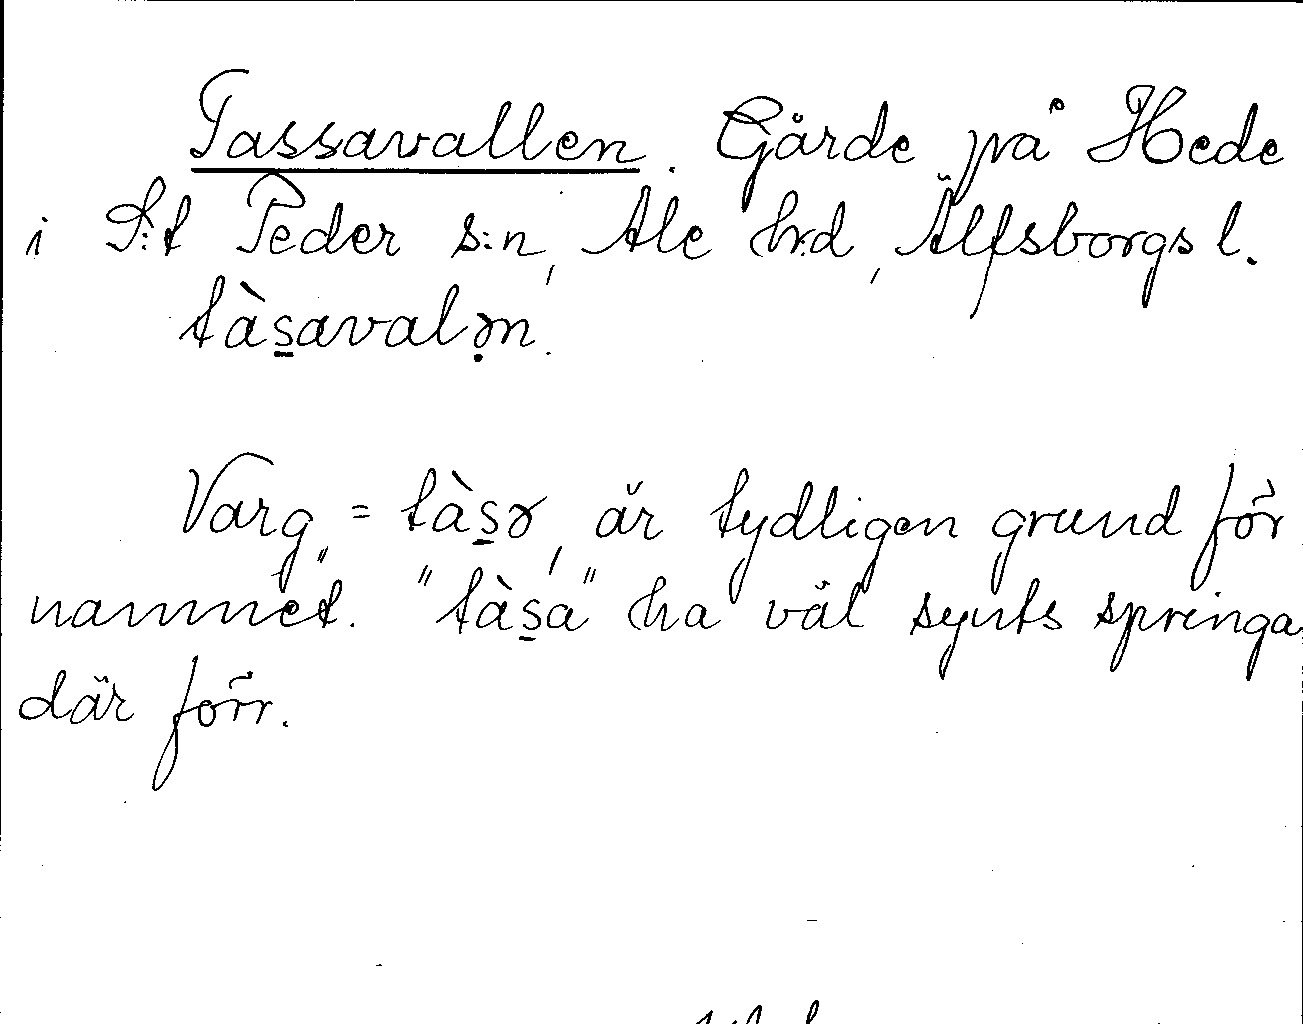 Tassavallen. Gärde på Hede
i S:t Peder s:n, Ale hrd, Älfsborgs l.
tàs̲avalə̣n.
Varg, = tàs̲ə, är tydligen grund för
namnet. "tàs̲a" ha väl synts springa
där förr.